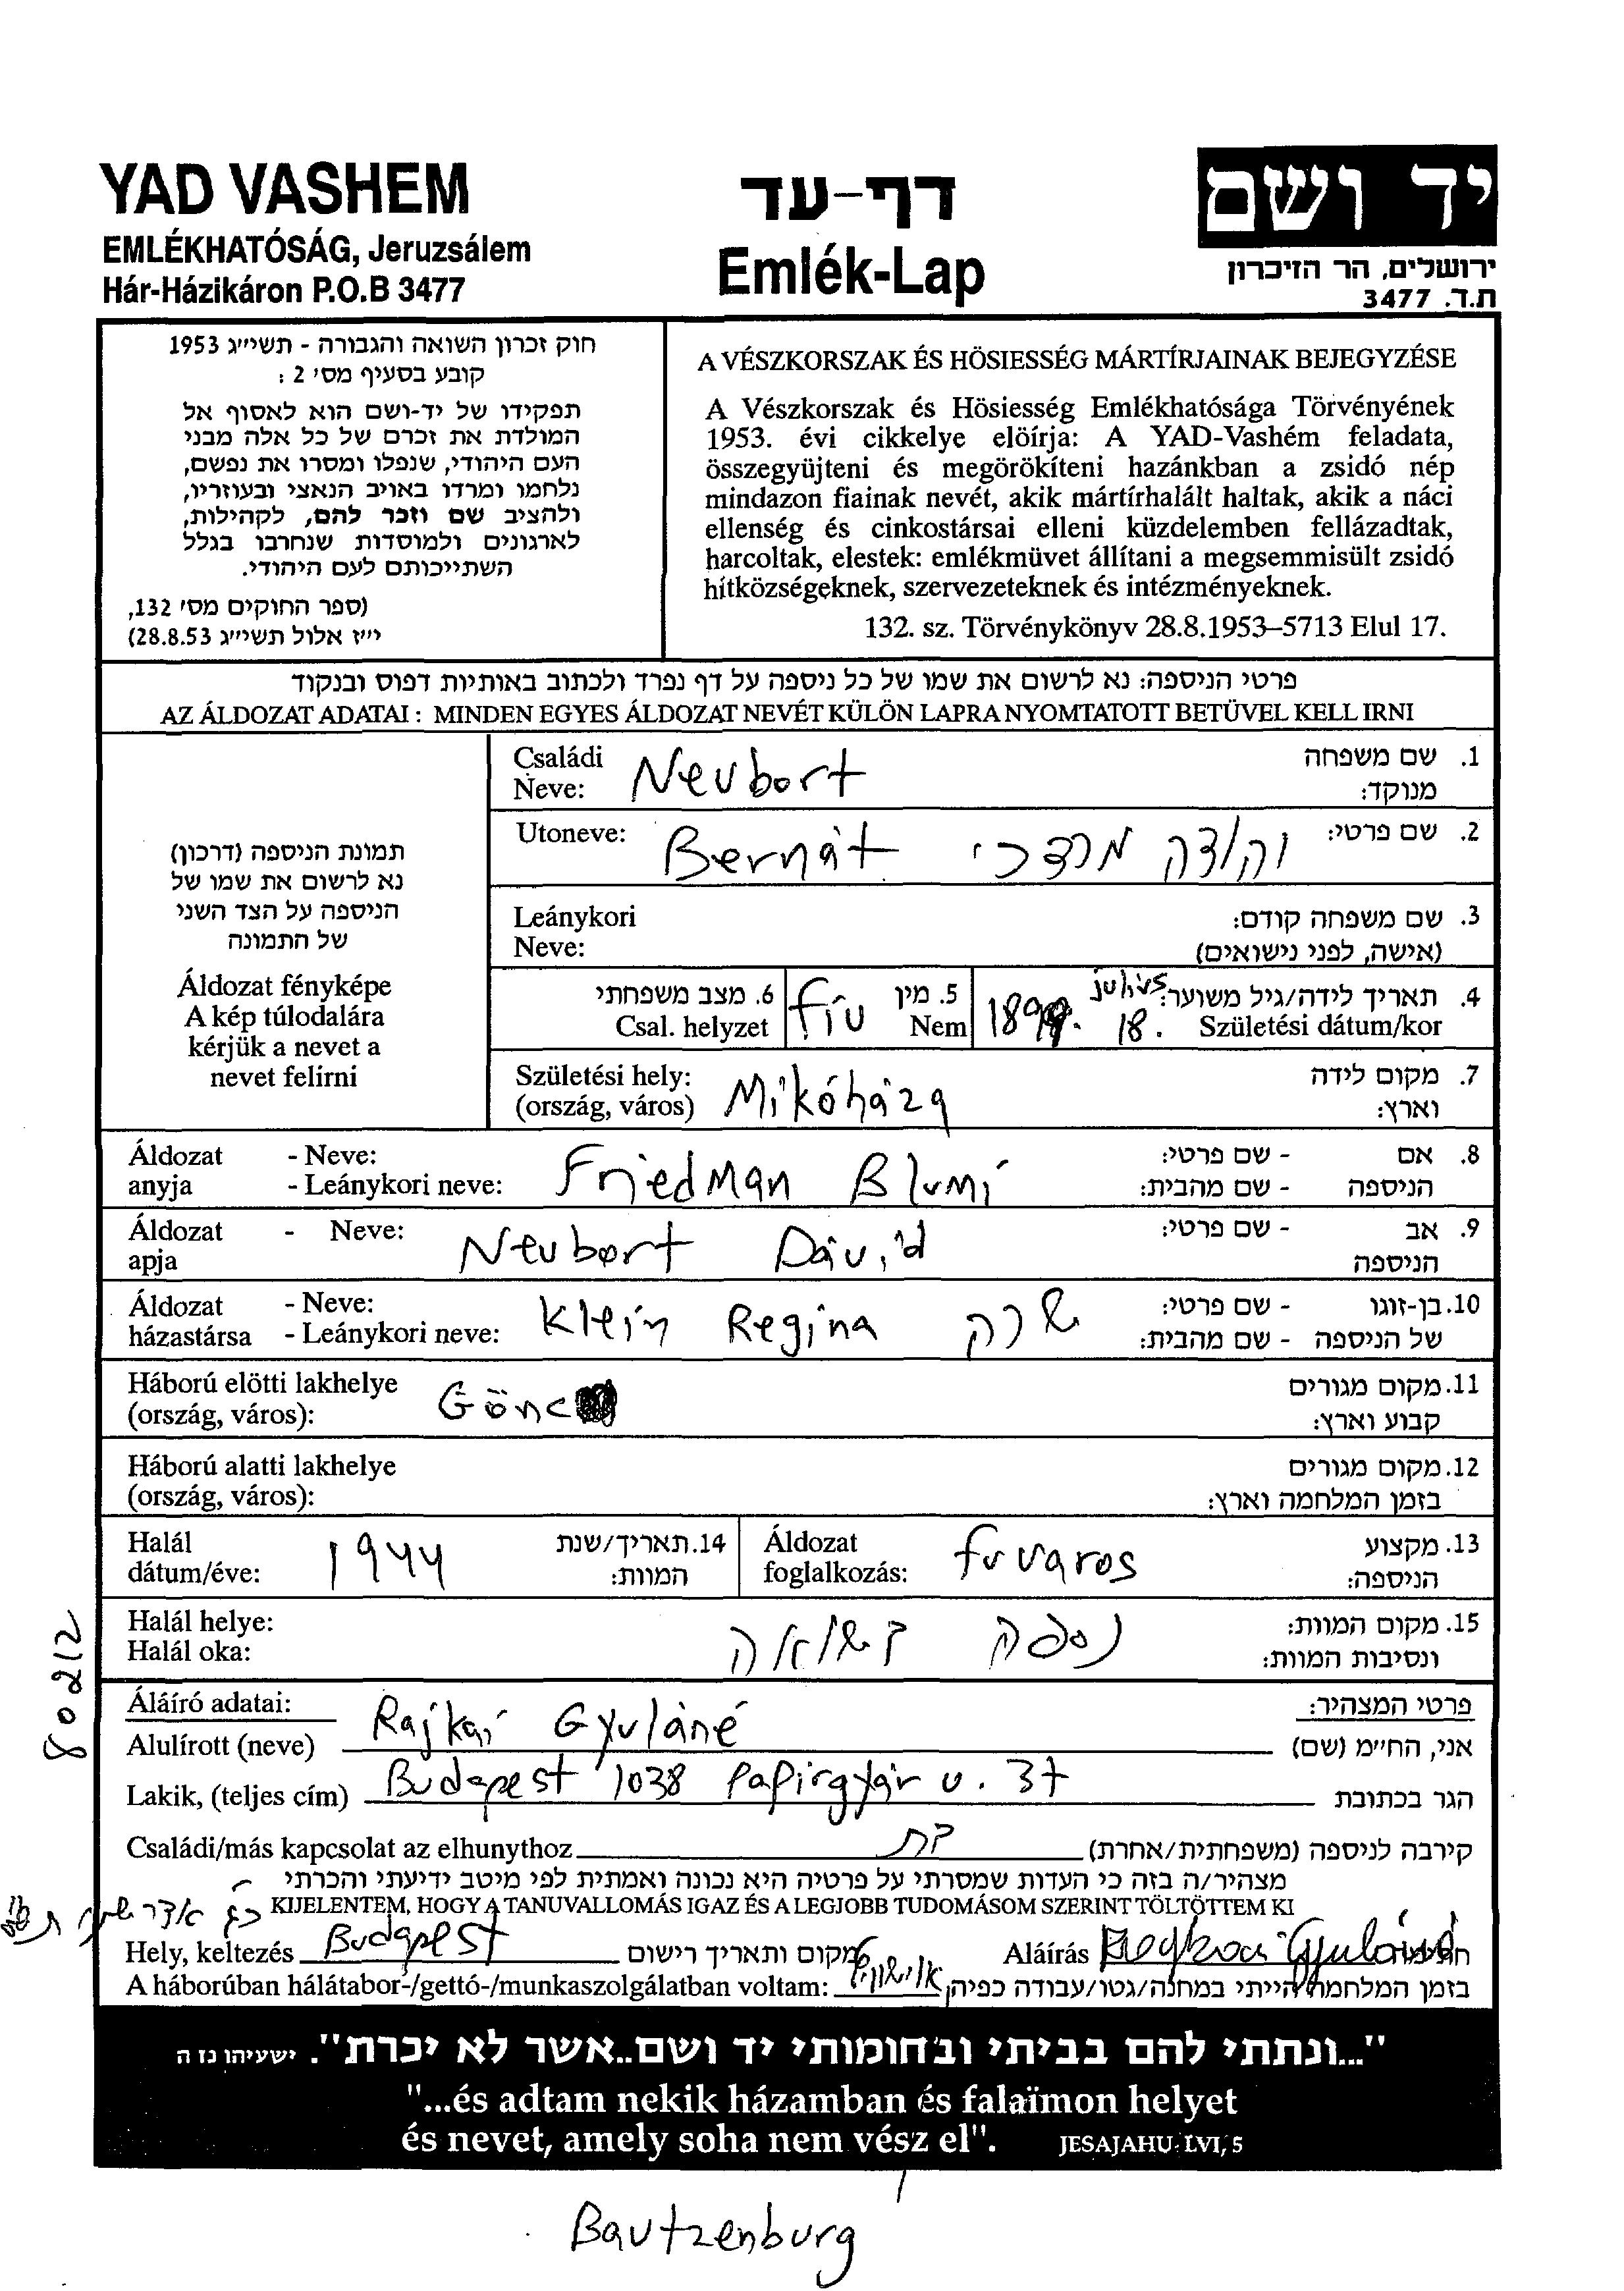 YAD VASHEM
EMLÉKHATÓSÁG, Jeruzsálem
Hár-Házikáron P.O.B 3477
דף-עד
Emlék-Lap
יד ושם
ירושלים, הר הזיכרון
ת.ד. 3477
חוק זכרון השואה והגבורה - תשי״ג 1953
קובע בסעיף מס׳ 2 :
תפקידו של יד-ושם הוא לאסוף אל
המולדת את זכרם של כל אלה מבני
העם היהודי, שנפלו ומסרו את נפשם,
נלחמו ומרדו באויב הנאצי ובעוזריו,
ולהציב שם וזכר להם, לקהילות,
לארגונים ולמוסדות שנחרבו בגלל
השתייכותם לעם היהודי.
(ספר החוקים מס׳ 132,
י״ז אלול תשי״ג 28.8.53)
A VÉSZKORSZAK ÉS HÖSIESSÉG MÁRTÍRJAINAK BEJEGYZÉSE
A Vészkorszak és Hösiesség Emlékhatósága Törvényének
1953. évi cikkelye elöírja: A YAD-Vashém feladata,
összegyüjteni és megörökíteni hazánkban a zsidó nép
mindazon fiainak nevét, akik mártírhalált haltak, akik a náci
ellenség és cinkostársai elleni küzdelemben fellázadtak,
harcoltak, elestek: emlékmüvet állítani a megsemmisült zsidó
hítközségeknek, szervezeteknek és intézményeknek.
132. sz. Törvénykönyv 28.8.1953–5713 Elul 17.
פרטי הניספה: נא לרשום את שמו של כל ניספה על דף נפרד ולכתוב באותיות דפוס ובנקוד
AZ ÁLDOZAT ADATAI : MINDEN EGYES ÁLDOZAT NEVÉT KÜLÖN LAPRA NYOMTATOTT BETÜVEL KELL IRNI
תמונת הניספה (דרכון)
נא לרשום את שמו של
הניספה על הצד השני
של התמונה
Áldozat fényképe
A kép túlodalára
kérjük a nevet a
nevet felirni
Családi Neve: Neubort 1. שם משפחה מנוקד:
Utoneve: Bernát מרדכי 2. שם פרטי:
Leánykori Neve: 3. שם משפחה קודם: (אישה, לפני נישואים)
6. מצב משפחתי Csal. helyzet fiu 5. מין Nem
július 18. 4. תאריך לידה/גיל משוער: Születési dátum/kor
Születési hely: (ország, város) Mikóháza 7. מקום לידה וארץ:
Áldozat anyja - Neve: - Leánykori neve: Friedman Blumi 8. אם הניספה - שם פרטי: - שם מהבית:
Áldozat apja - Neve: Neubort Dávid 9. אב הניספה - שם פרטי:
Áldozat házastársa - Neve: - Leánykori neve: Klein Regina שרה 10. בן-זוגו של הניספה - שם פרטי: - שם מהבית:
Háború elötti lakhelye (ország, város): Gönc 11. מקום מגורים קבוע וארץ:
Háború alatti lakhelye (ország, város): 12. מקום מגורים בזמן המלחמה וארץ:
Halál dátum/éve: 1944 14. תאריך/שנת המוות:
Áldozat foglalkozás: fuvaros 13. מקצוע הניספה:
Halál helye: Halál oka: נספה בשואה 15. מקום המוות: ונסיבות המוות:
80212
Áláíró adatai: פרטי המצהיר:
Alulírott (neve) Rajkai Gyuláné אני, הח״מ (שם)
Lakik, (teljes cím) Budapest 1038 Papirgyár u. 37 הגר בכתובת
Családi/más kapcsolat az elhunythoz בת קירבה לניספה (משפחתית/אחרת)
מצהיר/ה בזה כי העדות שמסרתי על פרטיה היא נכונה ואמתית לפי מיטב ידיעתי והכרתי
KIJELENTEM, HOGY A TANUVALLOMÁS IGAZ ÉS A LEGJOBB TUDOMÁSOM SZERINT TÖLTÖTTEM KI
Hely, keltezés Budapest מקום ותאריך רישום Aláírás Rajkai Gyuláné
A háborúban hálátabor-/gettó-/munkaszolgálatban voltam: אושוויץ בזמן המלחמה הייתי במחנה/גטו/עבודה כפיה
"...ונתתי להם בביתי ובחומותי יד ושם..אשר לא יכרת". ישעיהו נז ה
"...és adtam nekik házamban és falaïmon helyet
és nevet, amely soha nem vész el". JESAJAHU: LVI, 5
Bautzenburg